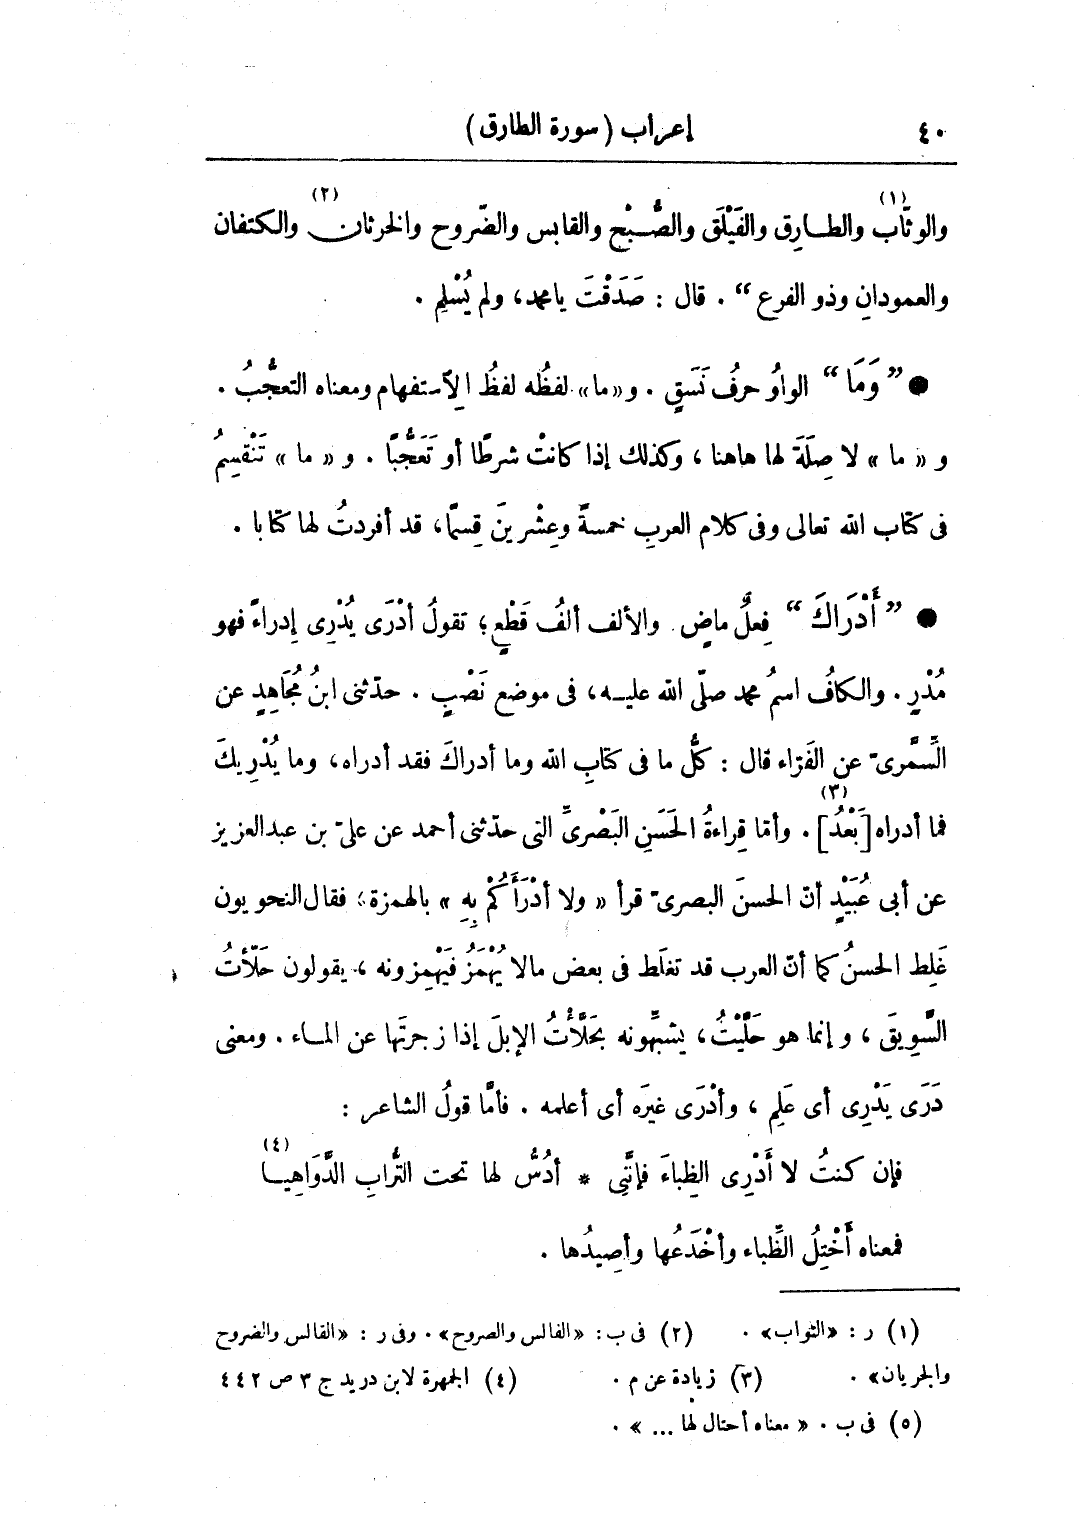 ٤٠
إعراب (سورة الطارق)
والوثّاب (١) والطـارِق والفَيْلَق والصُّـبْح والقابس والضّروح والخرثان (٢) والكتفان
والعمودانِ وذو الفرع“ . قال : صَدَقْتَ يا محمد، ولم يُسْلِم .
● ”وَمَا“ الواوُ حرفُ نَسَقٍ . و«ما» لفظُه لفظُ الآستفهام ومعناه التعجُّبُ .
و « ما » لا صِلَةَ لها هاهنا ، وكذلك إذا كانتْ شرطًا أو تَعَجُّبًا . و « ما » تَنْقَسِمُ
فى كتاب الله تعالى وفى كلام العربِ خمسةً وعِشْرينَ قِسمًا، قد أفردتُ لها كتابا .
● ”أَدْرَاكَ“ فِعلٌ ماضٍ . والألف ألفُ قَطْعٍ؛ تقولُ أدْرَى يُدْرِى إدراءً فهو
مُدْرٍ . والكافُ اسمُ محمد صلّى الله عليـه، فى موضع نَصْبٍ . حدّثنى ابنُ مُجَاهِدٍ عن
السِّمَّرىّ عن الفَرّاء قال : كلُّ ما فى كتابِ الله وما أدراكَ فقد أدراه، وما يُدْرِيكَ
فما أدراه [بَعْدُ] (٣) . وأمّا قِراءةُ الحَسَنِ البَصْرىِّ التى حدّثنى أحمد عن علىّ بن عبدالعزيز
عن أبى عُبَيْدٍ أنّ الحسنَ البصرىّ قرأ « ولا أدْرَأَكُمْ بِهِ » بالهمزة؛ فقال النحويون
غَلِط الحسنُ كما أنّ العرب قد تغلَط فى بعض مالا يُهْمَزُ فَيَهْمِزونه ، يقولون حَلّأتُ
السَّوِيقَ ، وإنما هو حَلَّيْتُ، يشبِّهونه بحَلَّأْتُ الإبلَ إذا زجرتَها عن المـاء . ومعنى
دَرَى يَدْرِى أى عَلِم ، وأدْرَى غيرَه أى أعلمه . فأمَّا قولُ الشاعر :
فإن كنتُ لا أَدْرِى الظِباءَ فإنَّنِى * أدُسُّ لها تحت التُّرابِ الدَّوَاهِيـا (٤)
فمعناه أَخْتِلُ الظِّباء وأخْدَعُها وأصِيدُها .
(١) ر : «الثواب» . (٢) فى ب : «الفالس والصروح» . وفى ر : «القالس والضروح
والجريان» . (٣) زيادة عن م . (٤) الجمهرة لابن دريد ج ٣ ص ٤٤٢
(٥) فى ب . « معناه أحتال لها ... » .